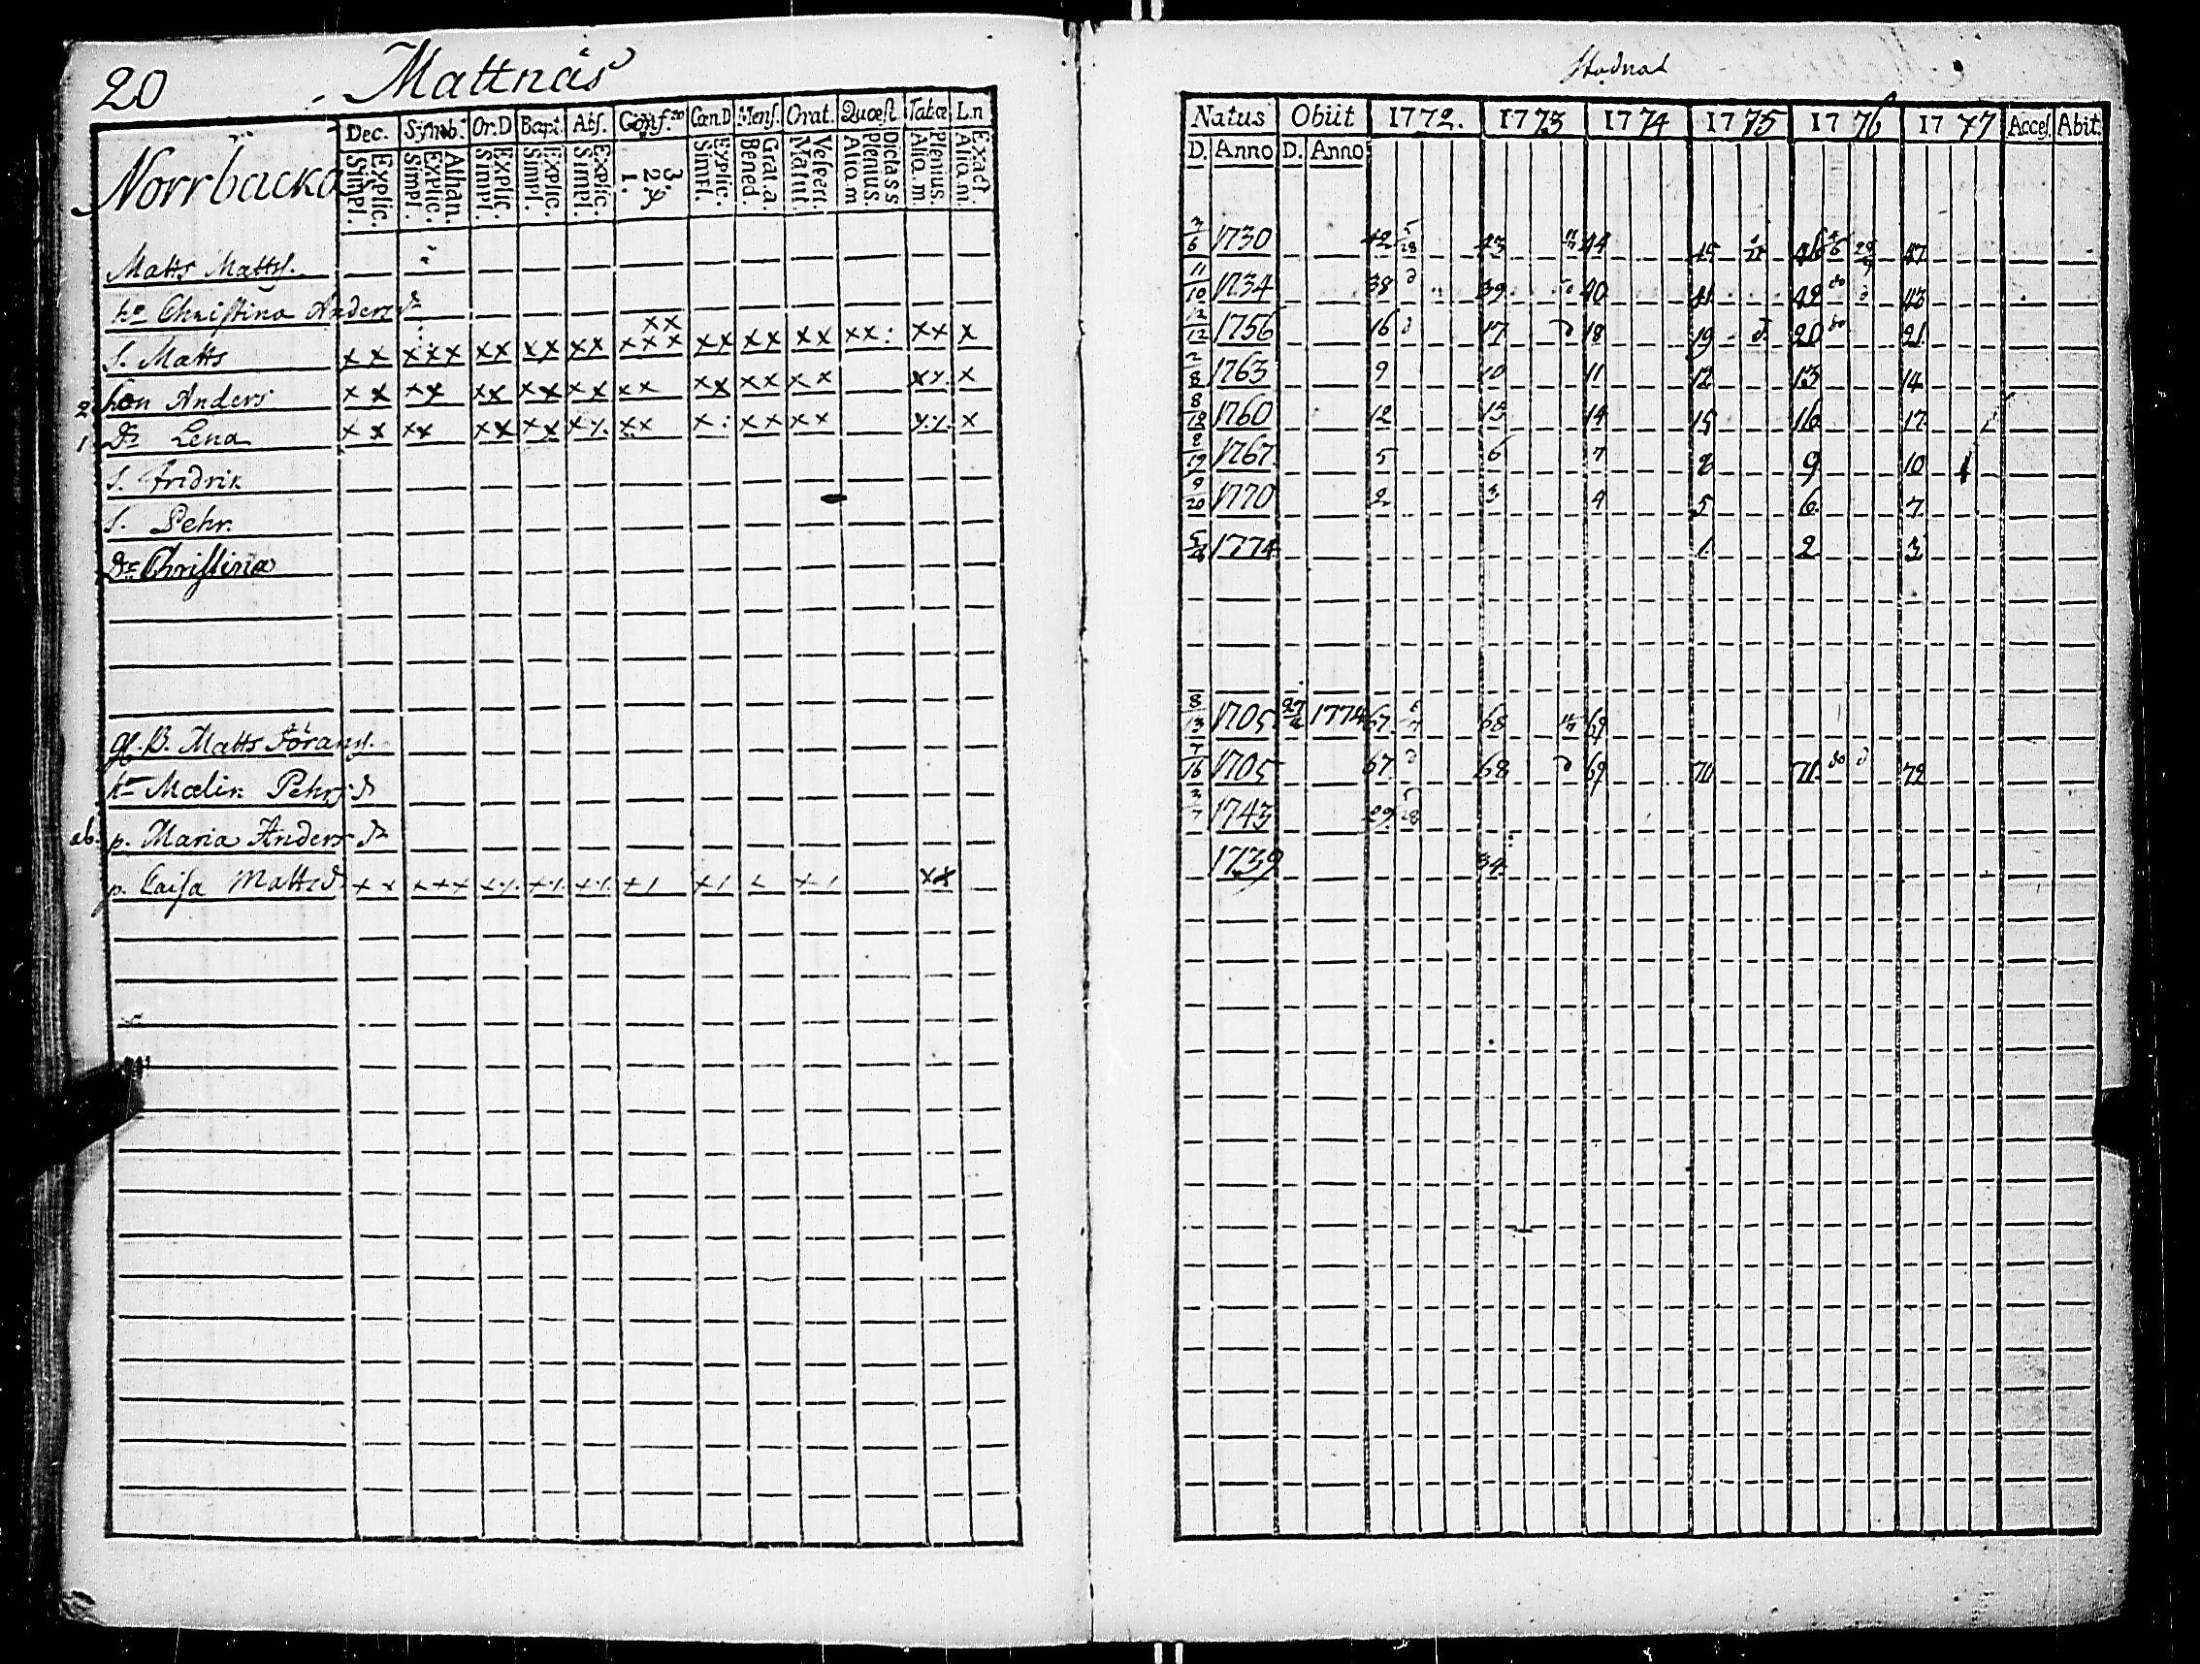 20 Mattnäs
Norrbacka
Dec. Symb. Or.D Bapt. Abs. Conf. Cœn.D Mens. Orat. Quæst. Tab.œ L.n
Explic. Simpl. Athan. Explic. Simpl. Explic. Simpl. Explic. Simpl. Explic. Simpl. 3. 2. 1. Explic. Simpl. Grat.a. Bened. Vespert. Matut. Dictass Plenius. Aliq.m Plenius. Aliq.m Exact. Aliq.m.
Matts Mattss.
hu Christina Andersd
S. Matts x x x x x x x x x x x x x x x x x x x x x x x x : x x x
2 son Anders x x x x x x x x x x x x x x x x x x x x x
1 Dr Lena x x x x x x x x x x x x : x x x x x
S. Fridrik
S. Pehr.
Dr Christina
gl. B. Matts Jörans.
hu Malin Pehrsd
ab. p. Maria Andersd
p. Caisa Mattsd x x x x x x x
Natus Obiit 1772. 1773 1774 1775 1776 1777 Acces. Abit.
D. Anno D. Anno
1730 42 5/28 43 44 45 46 47
11/10 1734 38 d 39 40 41 42 do 43
12/12 1756 16 d 17 d 18 19 d 20 do 21
2/8 1763 9 10 11 12 13 14
1760 12 13 14 15 16 17
8/19 1767 5 6 7 8 9 10
9/20 1770 2 3 4 5 6 7
1774 1 2 3
8/13 1705 1774 67 68 69
1705 67 d 68 d 69 70 71 do d 72
3/7 1743 29 5/28
1739 34